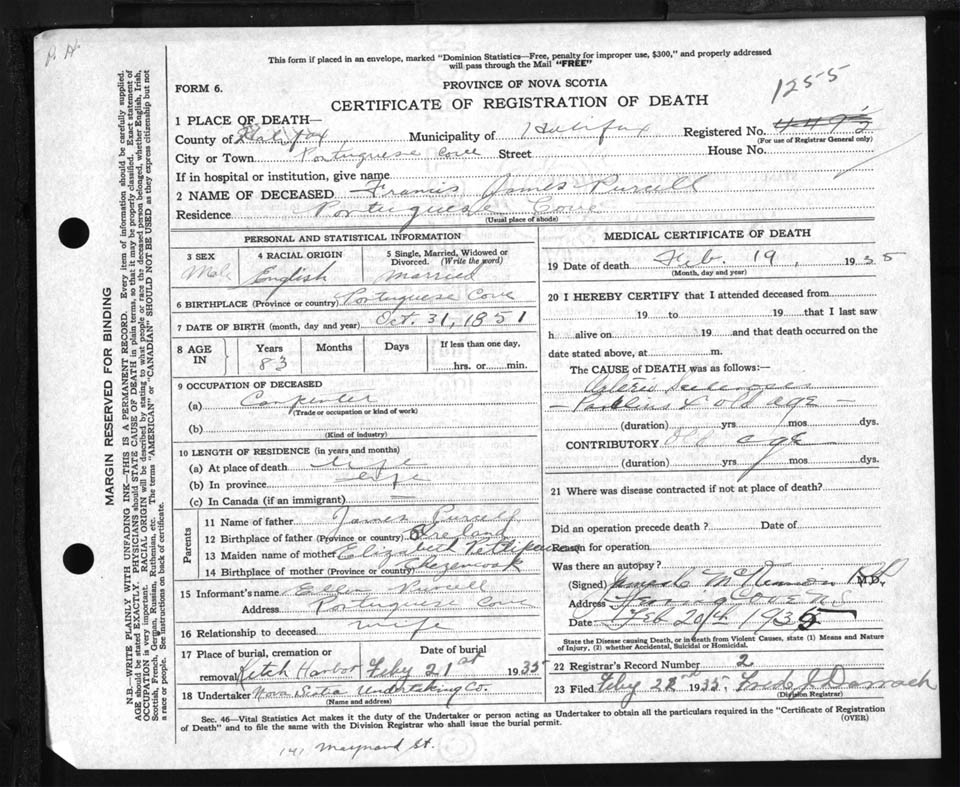 P. H.
This form if placed in an envelope, marked "Dominion Statistics—Free, penalty for improper use, $300," and properly addressed
will pass through the Mail "FREE"
PROVINCE OF NOVA SCOTIA
1255
FORM 6.
CERTIFICATE OF REGISTRATION OF DEATH
1 PLACE OF DEATH—
County of Halifax Municipality of Halifax Registered No.
(For use of Registrar General only)
City or Town Portuguese Cove Street House No.
If in hospital or institution, give name
2 NAME OF DECEASED Francis James Purcell
Residence Portuguese Cove
(Usual place of abode)
PERSONAL AND STATISTICAL INFORMATION
3 SEX 4 RACIAL ORIGIN 5 Single, Married, Widowed or
Divorced. (Write the word)
Male English Married
6 BIRTHPLACE (Province or country) Portuguese Cove
7 DATE OF BIRTH (month, day and year) Oct. 31, 1851
8 AGE IN Years Months Days If less than one day,
83 hrs. or min.
9 OCCUPATION OF DECEASED
(a) Carpenter
(Trade or occupation or kind of work)
(b)
(Kind of industry)
10 LENGTH OF RESIDENCE (in years and months)
(a) At place of death Life
(b) In province Life
(c) In Canada (if an immigrant) —
Parents
11 Name of father James Purcell
12 Birthplace of father (Province or country) Ireland
13 Maiden name of mother Elizabeth
14 Birthplace of mother (Province or country) Chezzencook
15 Informant's name Ellen Purcell
Address Portuguese Cove
16 Relationship to deceased wife
17 Place of burial, cremation or Date of burial
removal Ketch Harbor Feby 21st 1935
18 Undertaker Nova Scotia Undertaking Co.
MEDICAL CERTIFICATE OF DEATH
19 Date of death Feb. 19, 1935
(Month, day and year)
20 I HEREBY CERTIFY that I attended deceased from
19 to 19 that I last saw
h alive on 19 and that death occurred on the
date stated above, at m.
The CAUSE of DEATH was as follows:—
Arterio Sclerosis
& old age —
(duration) yrs mos dys.
CONTRIBUTORY Old age
(duration) yrs mos dys.
21 Where was disease contracted if not at place of death?
Did an operation precede death? Date of
Reason for operation
Was there an autopsy?
(Signed) M.D.
Address Herring Cove N.S
Date Feb 20th 1935
State the Disease causing Death, or in death from Violent Causes, state (1) Means and Nature
of Injury, (2) whether Accidental, Suicidal or Homicidal.
22 Registrar's Record Number 2
23 Filed Feby 22nd 1935 Fred J Darrach
(Division Registrar)
Sec. 46—Vital Statistics Act makes it the duty of the Undertaker or person acting as Undertaker to obtain all the particulars required in the "Certificate of Registration
of Death" and to file the same with the Division Registrar who shall issue the burial permit.
(OVER)
141 Maynard St.
MARGIN RESERVED FOR BINDING
N.B.—WRITE PLAINLY WITH UNFADING INK—THIS IS A PERMANENT RECORD. Every item of information should be carefully supplied.
AGE should be stated EXACTLY. PHYSICIANS should STATE CAUSE OF DEATH in plain terms, so that it may be properly classified. Exact statement of
OCCUPATION is very important. RACIAL ORIGIN will be described by stating to what people or race the deceased person belonged, whether English, Irish,
Scottish, French, German, Russian, Ruthenian, etc. The terms "AMERICAN" or "CANADIAN" SHOULD NOT BE USED as they express citizenship but not
a race or people. See instructions on back of certificate.